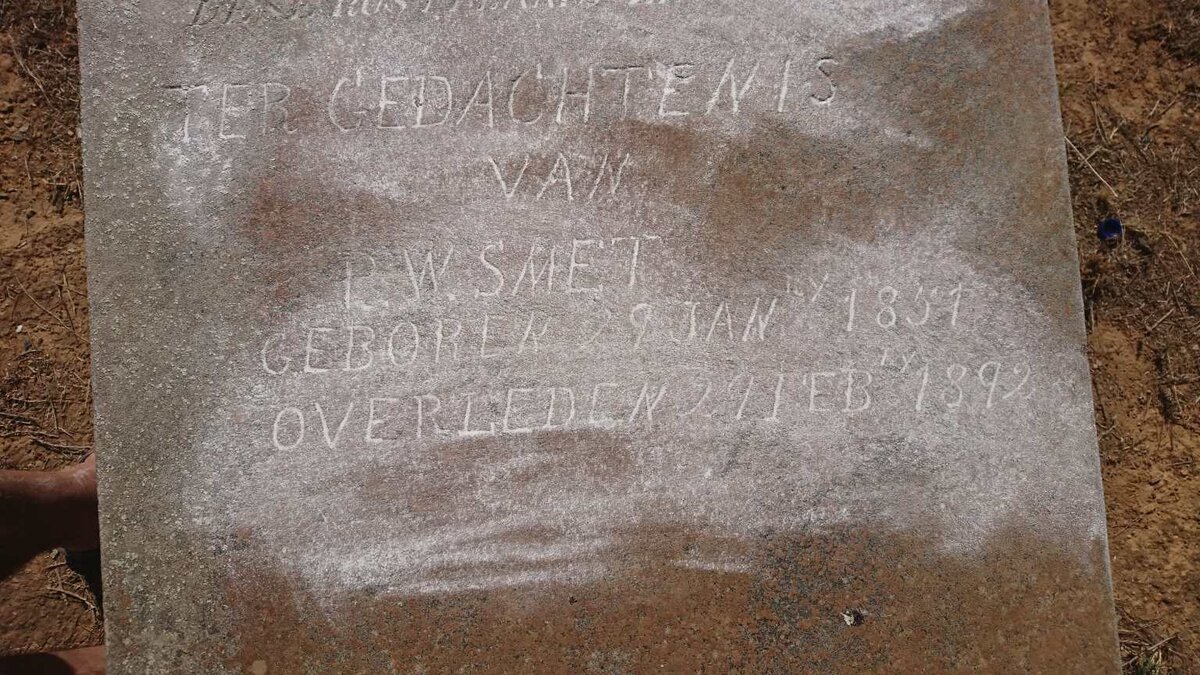 TER GEDACHTENIS
VAN
P. W. SMET
GEBOREN 29 JAN RY 1851
OVERLEDEN 29 FEB RY 1892